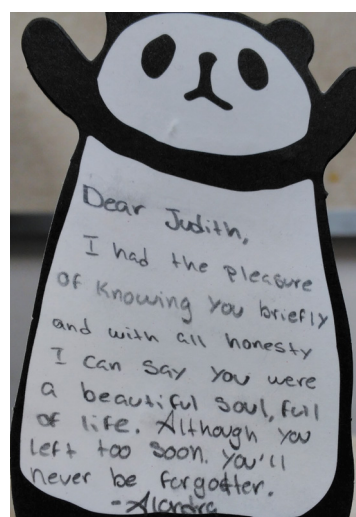 Dear Judith,
I had the pleasure
of knowing you briefly
and with all honesty
I can say you were
a beautiful soul, full
of life. Although you
left too soon. You'll
never be forgotten.